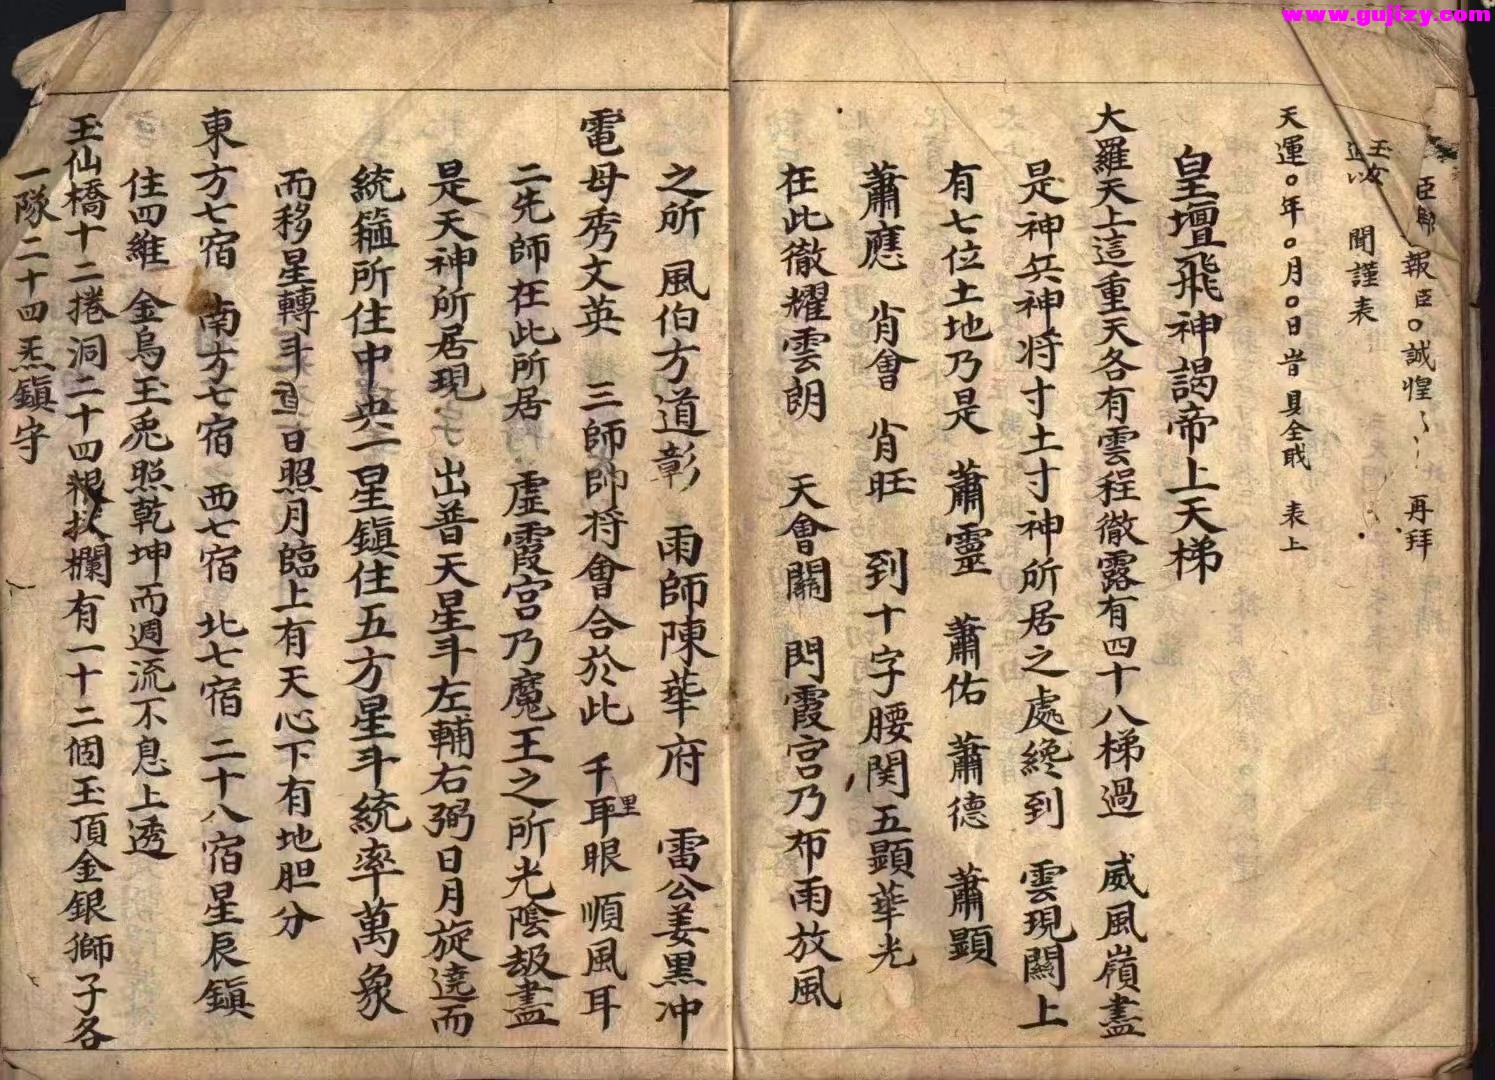 www.gujizy.com
報臣○誠惶 再拜
玉女 聞謹表
天運○年○月○日 旹 具全戝 表上
皇壇飛神謁帝上天梯
大羅天上這重天各有雲程徹露有四十八梯過 威風嶺盡
是神兵神将寸土寸神所居之處終到 雲現關上
有七位土地乃是 蕭靈 蕭佑 蕭德 蕭顯
蕭應 肖會 肖旺 到十字腰関五顯華光
在此徹耀雲朗 天會關 閃霞宮乃布雨放風
之所 風伯方道彰 雨師陳華府 雷公姜黑冲
電母秀文英 三師帥将會合於此 千里眼順風耳
二先師在此所居 虛霞宮乃魔王之所光陰劫盡
是天神所居現 出普天星斗左輔右弼日月旋遶而
統籬所住中央一星鎮住五方星斗統率萬象
而移星轉斗 日照月臨上有天心下有地胆分
東方七宿 南方七宿 西七宿 北七宿 二十八宿星辰鎮
住四維 金烏玉兎照乾坤而週流不息上透
玉仙橋十二捲洞二十四根扶欄有一十二個玉頂金銀獅子各
一隊二十四炁鎮守